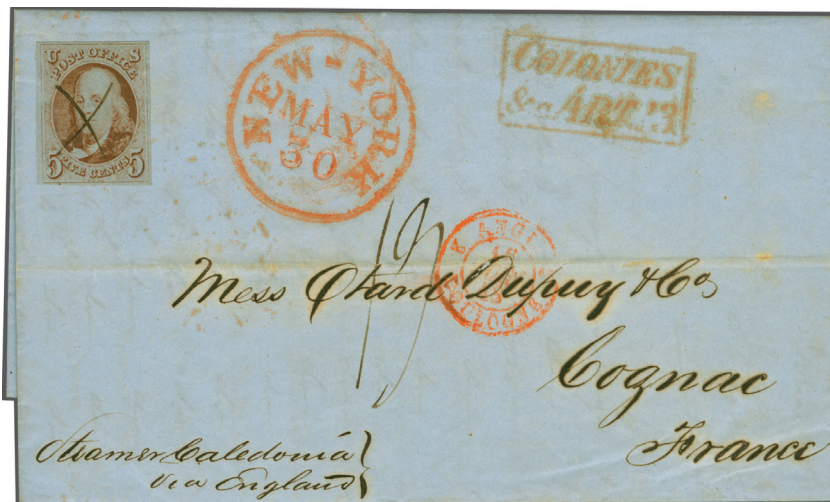 U S
POST OFFICE
FIVE CENTS
5 5
NEW-YORK
MAY
30
COLONIES
&c. ART.
ANGL.
BOULOGNE
Mess Otard Dupuy & Co
Cognac
France
Steamer Caledonia
via England